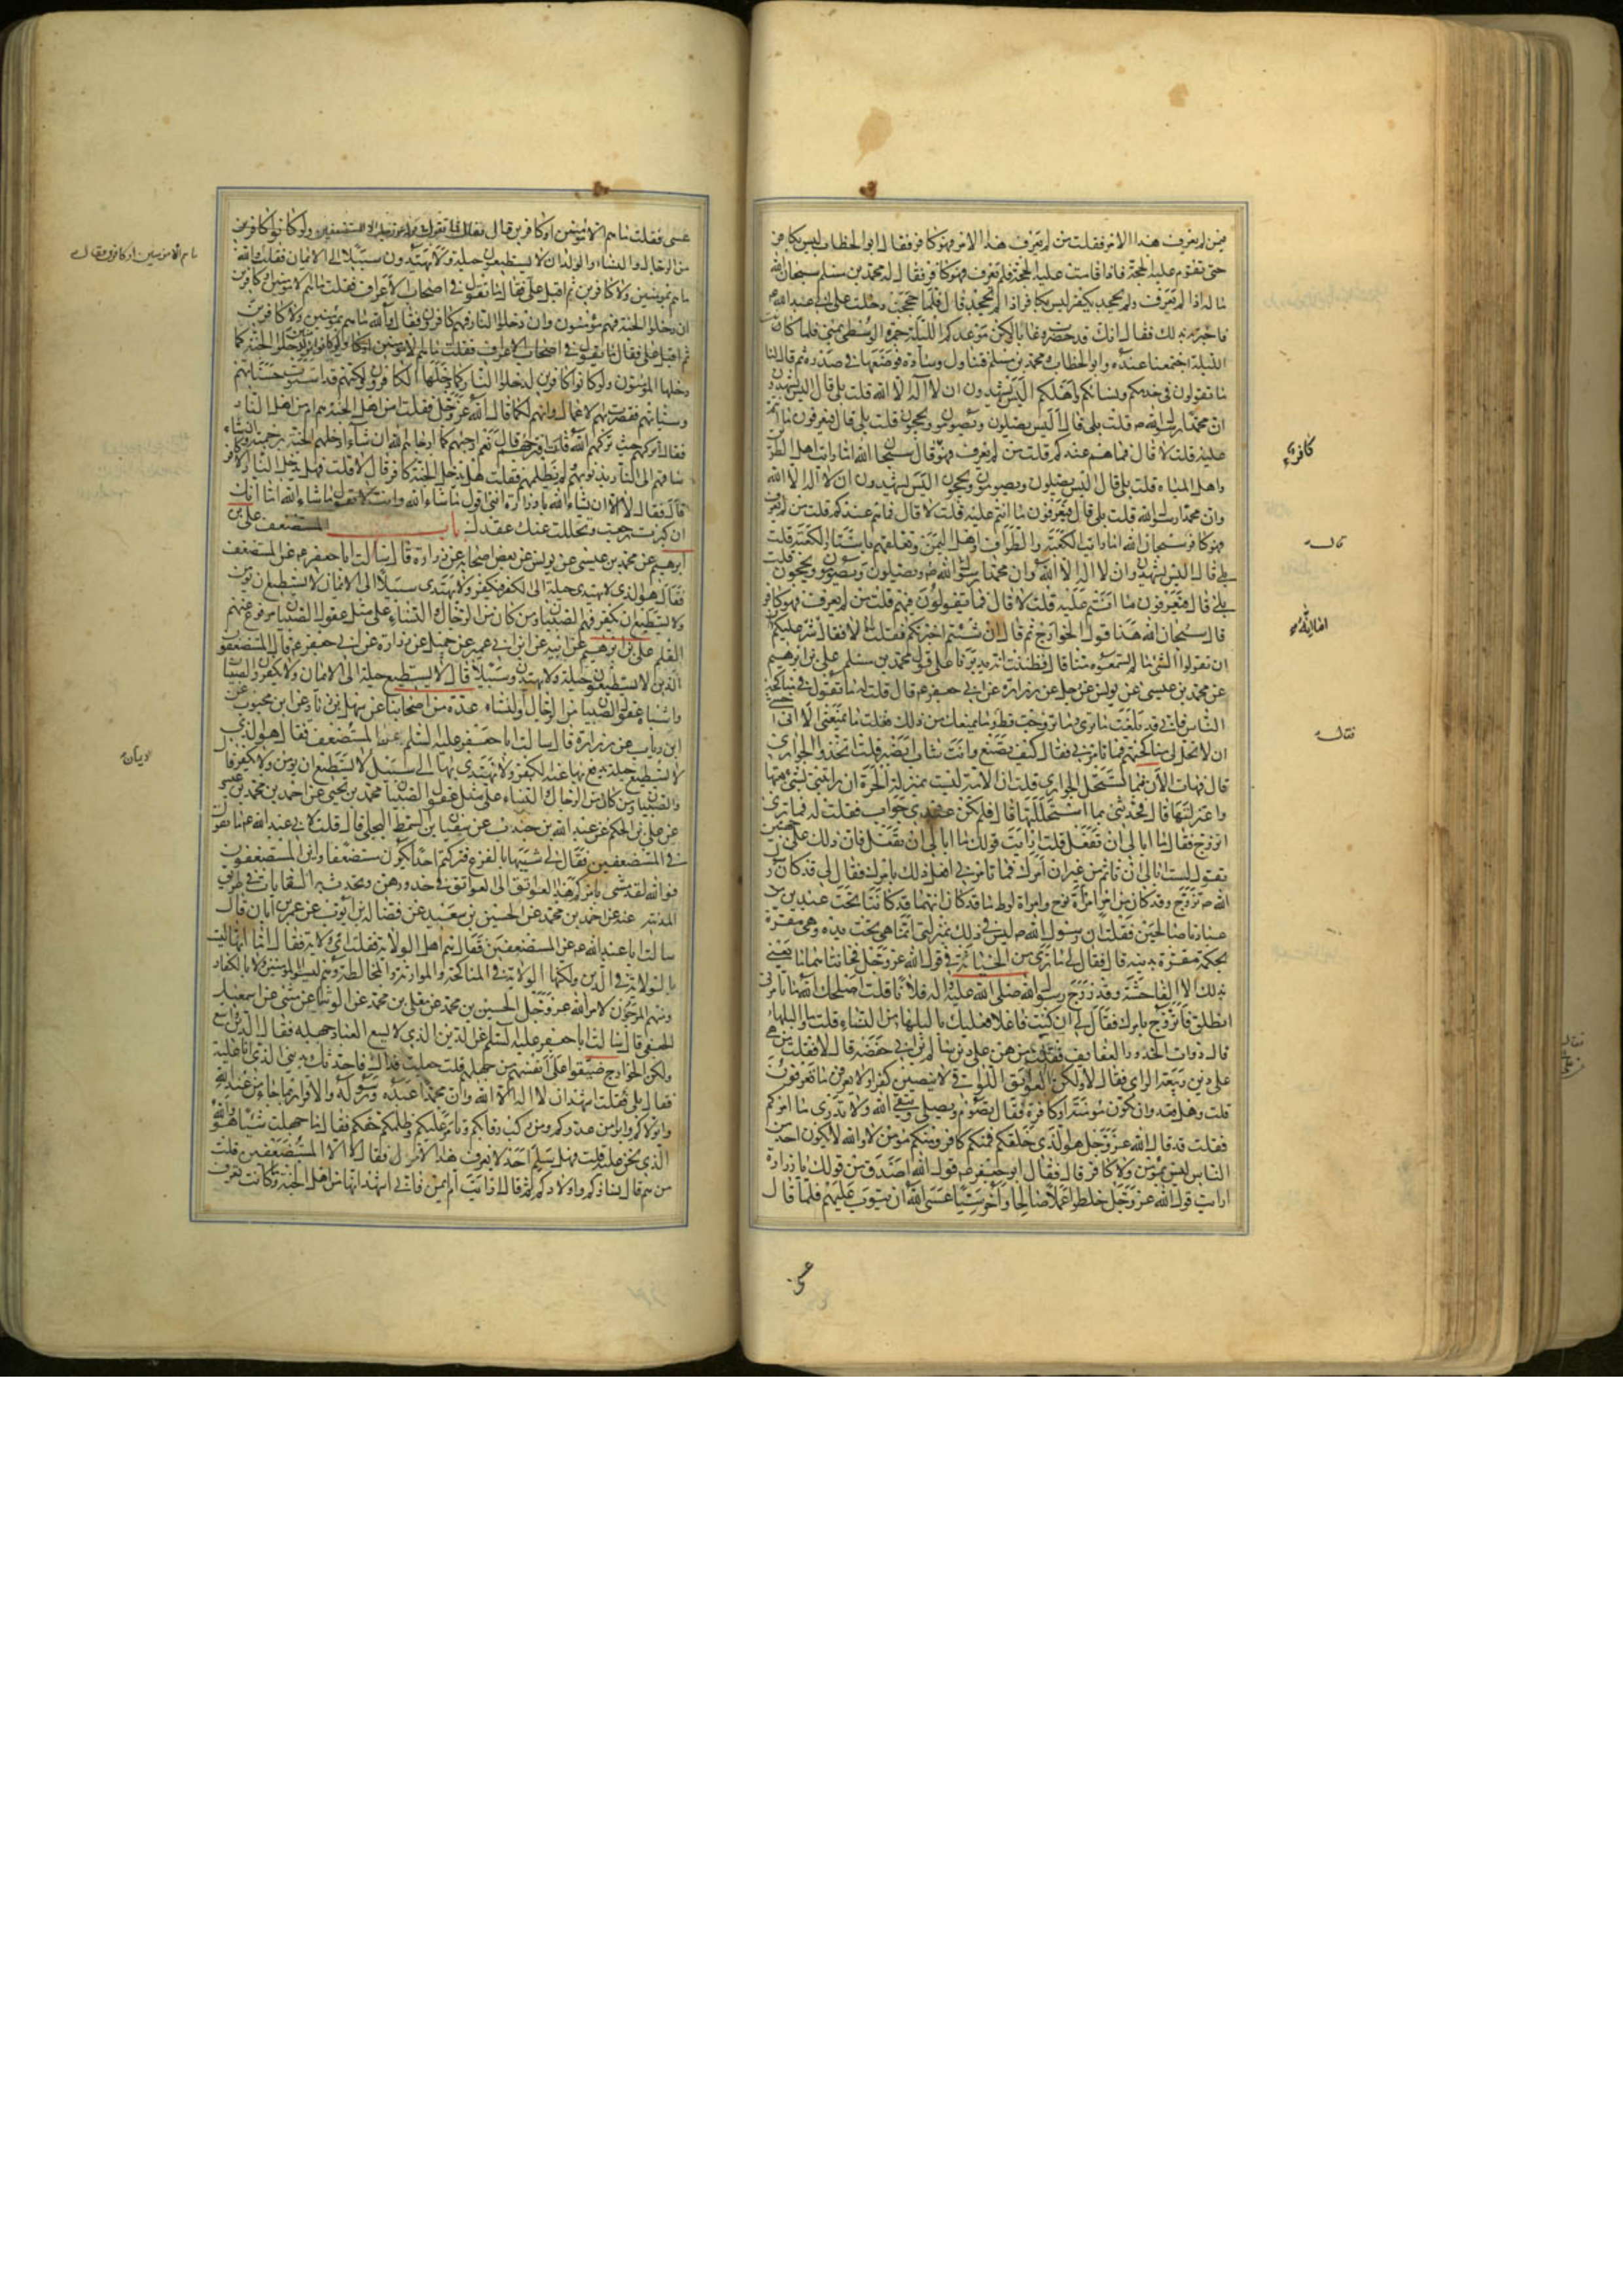 فمن لم يعرف هذا الامر فقلت من لم يعرف هذا الامر فهو كافر فقال ابو الخطاب ليس بكافر
حتى تقوم عليه الحجة فاذا قامت عليه الحجة فلم يعرف فهو كافر فقال له محمد بن مسلم سبحان الله
ما له اذا لم يعرف ولم يجحد يكفر ليس بكافر اذا لم يجحد قال فلما حججت دخلت على ابي عبد الله ع
فاخبرته بذلك فقال انك قد حضرت وغابا ولكن موعدكم الليلة جمرة الوسطى بمنى فلما كانت
الليلة اجتمعنا عنده وابو الخطاب ومحمد بن مسلم فتناول وسادة فوضعها في صدره ثم قال لنا
ما تقولون في خدمكم ونسائكم واهلكم اليس يشهدون ان لا اله الا الله قلت بلى قال اليس يشهدون
ان محمدا رسول الله ص قلت بلى قال اليس يصلون ويصومون ويحجون قلت بلى قال فيعرفون ما انتم
عليه قلت لا قال فما هم عندكم قلت من لم يعرف فهو قال سبحان الله اما رايت اهل الطرق
واهل المياه قلت بلى قال اليس يصلون ويصومون ويحجون اليس يشهدون ان لا اله الا الله
وان محمدا رسول الله قلت بلى قال فيعرفون ما انتم عليه قلت لا قال فما هم عندكم قلت من لم يعرف
فهو كافر سبحان الله اما رايت الكعبة والطواف واهل اليمن وتعلقهم باستار الكعبة قلت
بلى قال اليس يشهدون ان لا اله الا الله وان محمدا رسول الله ص ويصلون ويصومون ويحجون قلت
بلى قال فيعرفون ما انتم عليه قلت لا قال فما تقولون فيهم قلت من لم يعرف فهو كافر
قال سبحان الله هذا قول الخوارج ثم قال ان شئتم اخبرتكم فقلت انا لا فقال شر عليكم
ان تقولوا الشئ ما لم تسمعوه منا قال فظننت انه يديرنا على قول محمد بن مسلم علي بن ابرهيم
عن محمد بن عيسى عن يونس عن رجل عن زرارة عن ابي جعفر ع قال قلت له ما تقول في مناكحة
الناس فاني قد بلغت ما ترى وما تزوجت قط قال وما يمنعك من ذلك فقلت ما يمنعني الا انني اخشى
ان لا تحل لي مناكحتهم فما تامرني فقال كيف تصنع وانت شاب اتصبر قلت اتخذ الجواري
قال فهات الان فبما تستحل الجواري قلت ان الامة ليست بمنزلة الحرة ان رابتني بشئ بعتها
واعتزلتها قال فحدثني بما استحللتها قال فلم يكن عندي جواب فقلت له فما ترى
اتزوج فقال ما ابالي ان تفعل قلت ارايت قولك ما ابالي ان تفعل فان ذلك على جهتين
تقول لست ابالي ان تاثم من غير ان امرك فما تامرني افعل ذلك بامرك فقال لي قد كان رسول
الله ص تزوج وقد كان من امراة نوح وامراة لوط ما قد كان انهما قد كانتا تحت عبدين من
عبادنا صالحين فقلت ان رسول الله ص ليس في ذلك بمنزلتي انما هي تحت يده وهي مقرة
بحكمه مقرة بدينه قال فقال لي ما ترى من الخيانة في قول الله عز وجل فخانتاهما ما يعني
بذلك الا الفاحشة وقد زوج رسول الله صلى الله عليه واله فلانا قلت اصلحك الله ما تامرني
انطلق فاتزوج بامرك فقال لي ان كنت فاعلا فعليك بالبلهاء من النساء قلت وما البلهاء
قال ذوات الخدور العفايف فقلت من هي على دين سالم بن ابي حفصة قال لا فقلت من هي
على دين ربيعة الراي فقال لا ولكن العواتق اللواتي لا ينصبن كفرا ولا يعرفن ما تعرفون
قلت وهل تعدو ان تكون مؤمنة او كافرة فقال تصوم وتصلي وتتقي الله ولا تدري ما امركم
فقلت قد قال الله عز وجل هو الذي خلقكم فمنكم كافر ومنكم مؤمن لا والله لا يكون احد من
الناس ليس بمؤمن ولا كافر قال فقال ابو جعفر ع قول الله اصدق من قولك يا زرارة
ارايت قول الله عز وجل خلطوا عملا صالحا واخر سيئا عسى الله ان يتوب عليهم فلما قال
عسى
كافر
قال
فقال
عسى فقلت ما هم الا مؤمنين او كافرين قال فقال ما تقول في قوله عز وجل الا المستضعفين
من الرجال والنساء والولدان لا يستطيعون حيلة ولا يهتدون سبيلا الى الايمان فقلت
ما هم بمؤمنين ولا كافرين ثم اقبل علي فقال ما تقول في اصحاب الاعراف فقلت ما هم الا مؤمنين او كافرين
ان دخلوا الجنة فهم مؤمنون وان دخلوا النار فهم كافرون فقال والله ما هم بمؤمنين ولا كافرين
دخلها المؤمنون ولو كانوا كافرين لدخلوا النار كما دخلها الكافرون ولكنهم قد استوت حسناتهم
وسيئاتهم فقصرت بهم الاعمال وانهم لكما قال الله عز وجل فقلت امن اهل الجنة هم ام من اهل النار
فقال اتركهم حيث تركهم الله قلت افترجئهم قال نعم ارجئهم كما ارجاهم الله ان شاء ادخلهم الجنة برحمته وان شاء
ساقهم الى النار بذنوبهم ولم يظلمهم فقلت هل يدخل الجنة كافر قال لا قلت فهل يدخل النار الا كافر
قال فقال لا الا ان يشاء الله يا زرارة انني اقول ما شاء الله وانت لا تقول ما شاء الله اما انك
ان كبرت رجعت وتحللت عنك عقدك باب المستضعف علي بن
ابرهيم عن محمد بن عيسى عن يونس عن بعض اصحابه عن زرارة قال سالت ابا جعفر ع عن المستضعف
فقال هو الذي لا يهتدي حيلة الى الكفر فيكفر ولا يهتدي سبيلا الى الايمان لا يستطيع ان يؤمن
ولا يستطيع ان يكفر فهم الصبيان ومن كان من الرجال والنساء على مثل عقول الصبيان مرفوع عنهم
القلم علي بن ابرهيم عن ابيه عن ابن ابي عمير عن جميل عن زرارة عن ابي جعفر ع قال المستضعفون
الذين لا يستطيعون حيلة ولا يهتدون سبيلا قال لا يستطيع حيلة الى الايمان ولا يكفرون الصبيان
واشباه عقول الصبيان من الرجال والنساء عدة من اصحابنا عن سهل بن زياد عن ابن محبوب عن
ابن رياب عن زرارة قال سالت ابا جعفر عليه السلم عن المستضعف فقال هو الذي
لا يستطيع حيلة يدفع بها عنه الكفر ولا يهتدي بها الى سبيل الايمان لا يستطيع ان يؤمن ولا يكفر قال
والصبيان ومن كان من الرجال والنساء على مثل عقول الصبيان محمد بن يحيى عن احمد بن محمد بن عيسى
عن علي بن الحكم عن عبد الله بن جندب عن سفين بن السمط البجلي قال قلت لابي عبد الله ع ما تقول
في المستضعفين فقال لي شبيها بالفزع فتركتم احدا يكون مستضعفا واين المستضعفون
فوالله لقد مشى بامركم هذا العواتق الى العواتق في خدورهن وتحدث به السقايات في طريق
المدينة عنه عن احمد بن محمد عن الحسين بن سعيد عن فضالة بن ايوب عن عمر بن ابان قال
سالت ابا عبد الله ع عن المستضعفين فقال هم اهل الولاية فقلت اي ولاية فقال اما انها ليست
بالولاية في الدين ولكنها الولاية في المناكحة والموارثة والمخالطة وهم ليسوا بالمؤمنين ولا بالكفار
ومنهم المرجون لامر الله عز وجل الحسين بن محمد عن معلى بن محمد عن الوشاء عن مثنى عن اسمعيل
الجعفي قال سالت ابا جعفر عليه السلم عن الدين الذي لا يسع العباد جهله فقال الدين واسع
ولكن الخوارج ضيقوا على انفسهم من جهلهم قلت جعلت فداك فاحدثك بديني الذي انا عليه
فقال بلى فقلت اشهد ان لا اله الا الله وان محمدا عبده ورسوله والاقرار بما جاء من عند الله
واتولاكم وابرا من عدوكم ومن ركب رقابكم وتامر عليكم وظلمكم حقكم فقال ما جهلت شيئا هو والله
الذي نحن عليه قلت فهل يسلم احد لا يعرف هذا الامر فقال لا الا المستضعفين قلت
من هم قال نساؤكم واولادكم ثم قال ارايت ام ايمن فاني اشهد انها من اهل الجنة وما كانت تعرف
ما هم الا مؤمنين او كافرين فقال